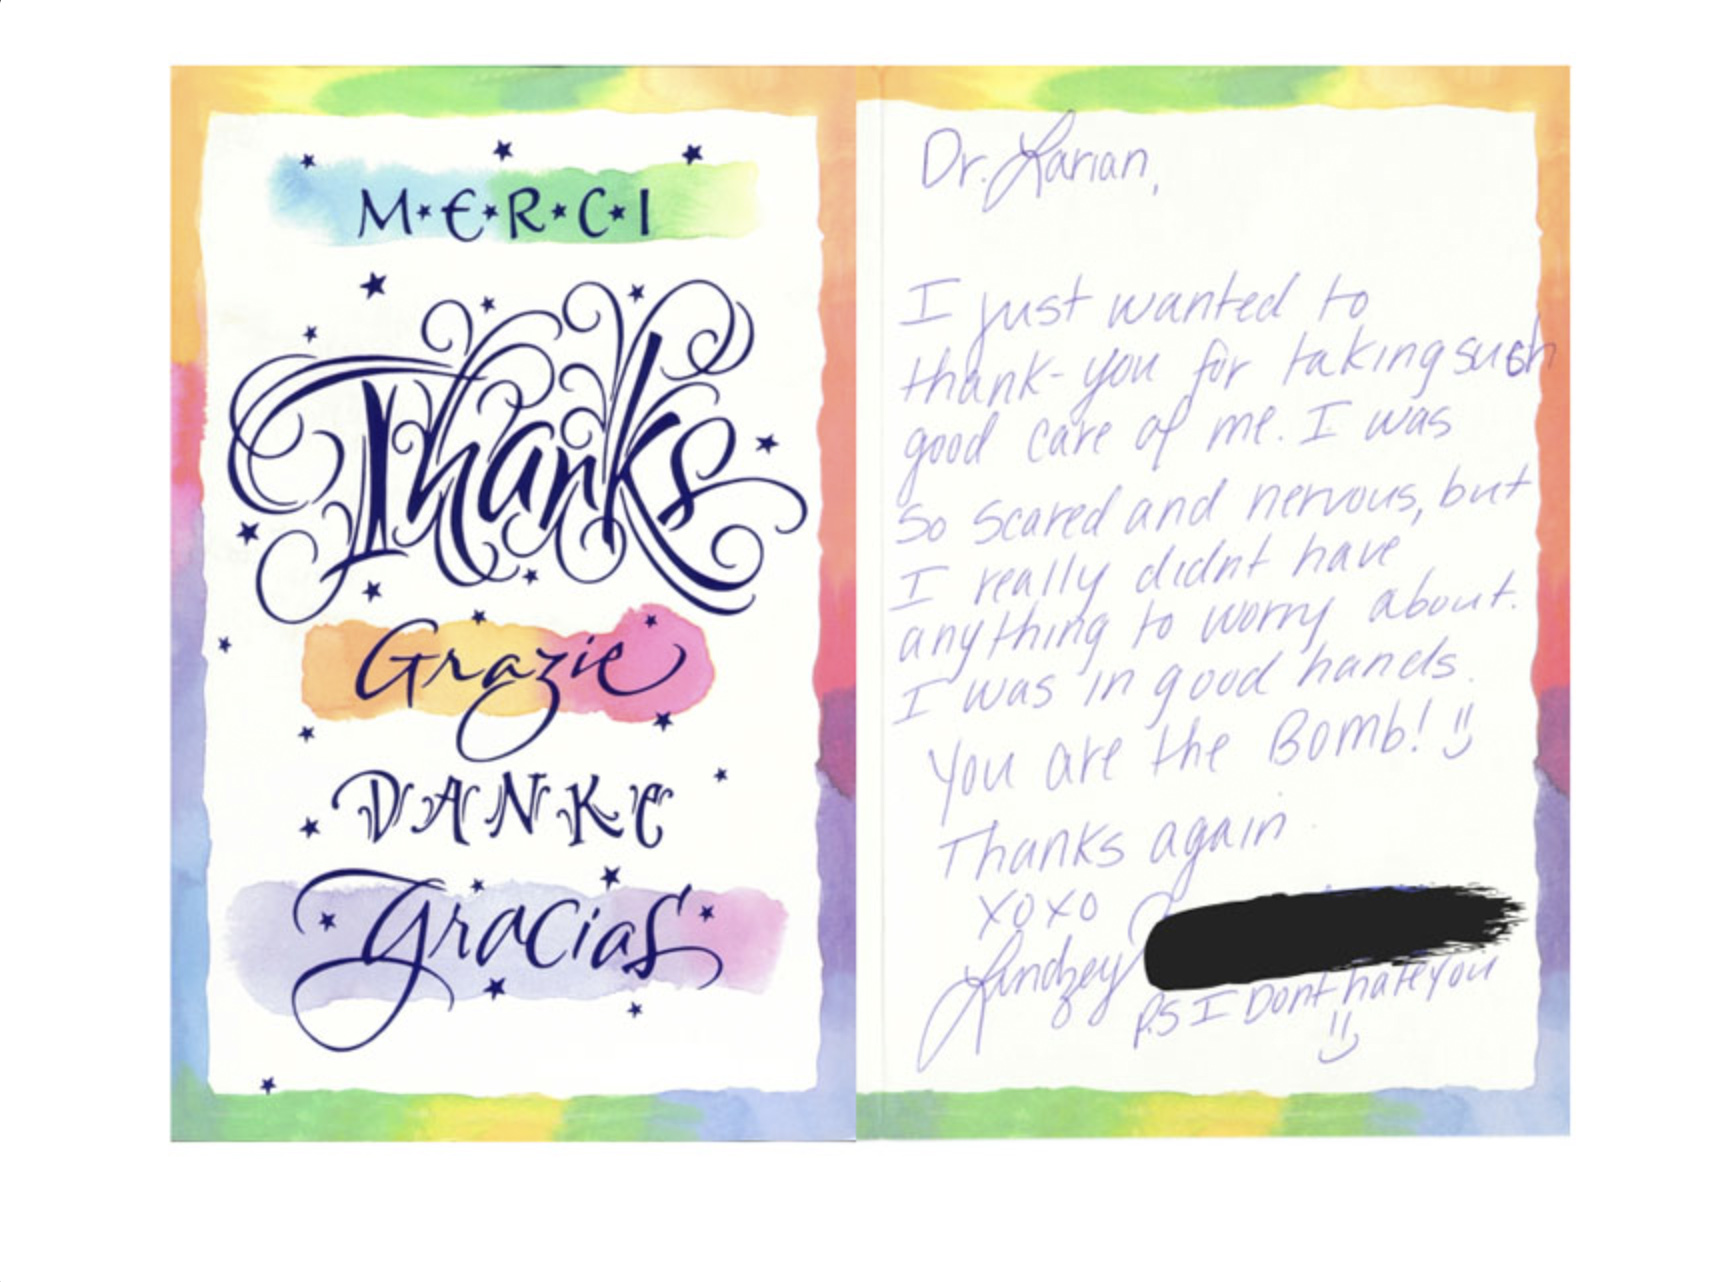 M·E·R·C·I
Thanks
Grazie
DANKE
Gracias
Dr. Larian,
I just wanted to
thank-you for taking such
good care of me. I was
so scared and nervous, but
I really didnt have
anything to worry about.
I was in good hands.
You are the Bomb!
Thanks again
xoxo
Lindzey
P.S I Dont hate you